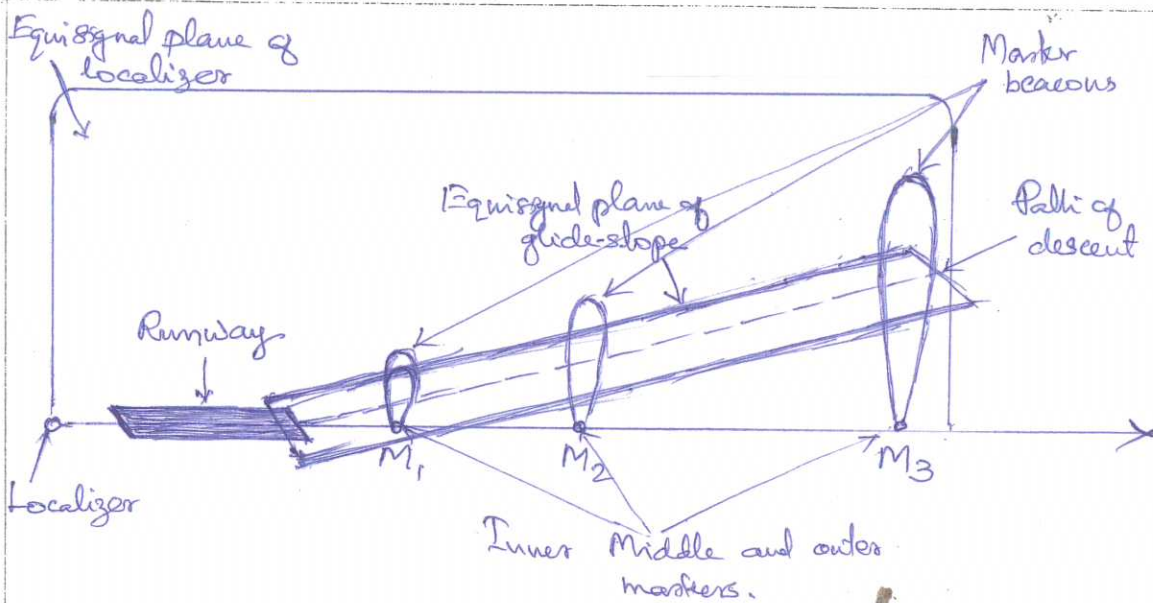 Equisignal plane of
localizer
Marker
beacons
Equisignal plane of
glide-slope
Path of
descent
Runway
M1
M2
M3
Localizer
Inner Middle and outer
markers.